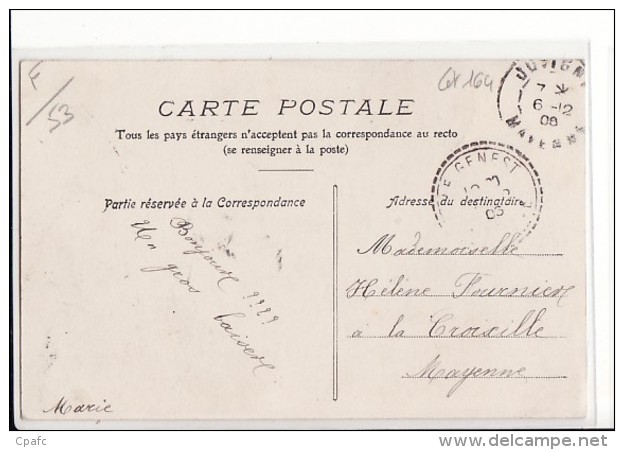 F/53
Ct 164
JUVIGN
7
6-12
06
MAYENNE
CARTE POSTALE
Tous les pays étrangers n'acceptent pas la correspondance au recto
(se renseigner à la poste)
GENEST
06
Partie réservée à la Correspondance
Adresse du destinataire
Bonjour !!!!
Un gros baiser
Marie
Mademoiselle
Hélène Fournier
à la Croixille
Mayenne
Cpafc
www.delcampe.net